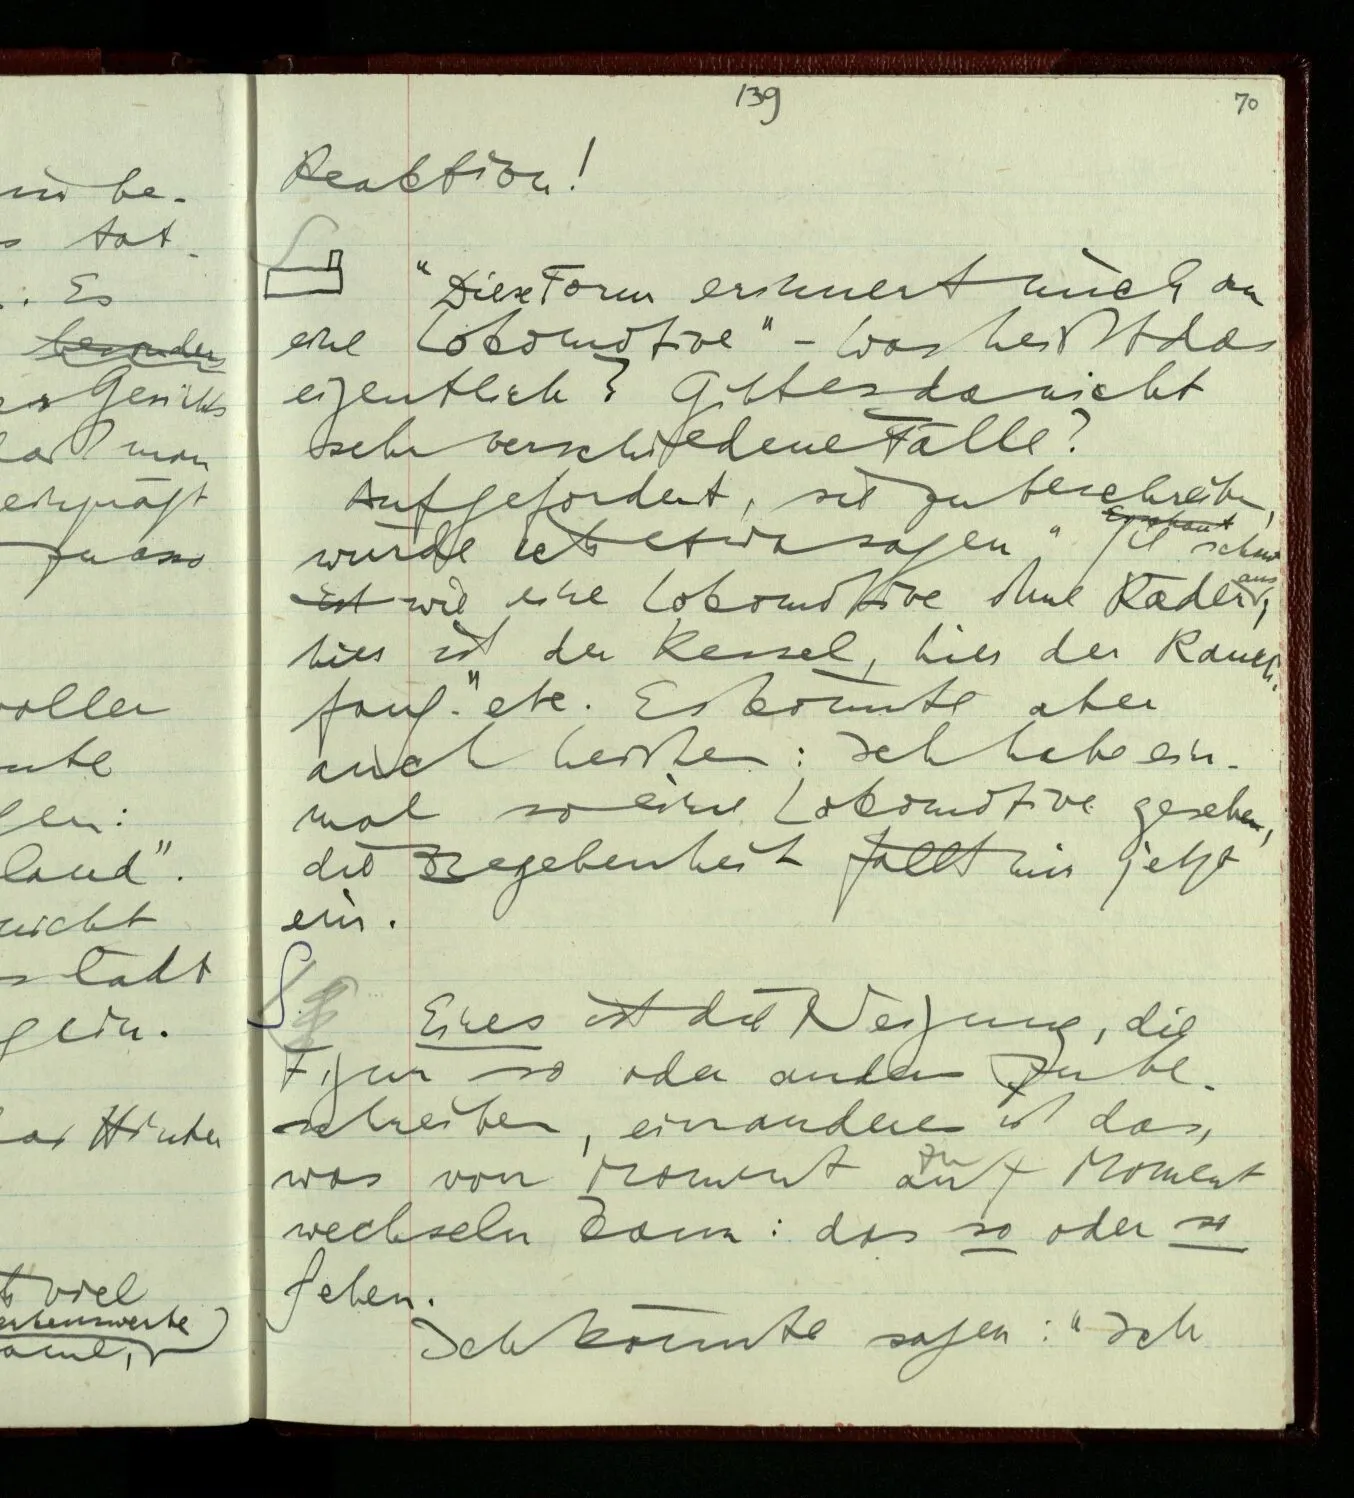 139
70
Reaktion!
"Diese Form erinnert mich an
eine Lokomotive" – was heißt das
eigentlich? Gibt es da nicht
sehr verschiedene Fälle?
Aufgefordert, sie zu beschreiben,
würde ich etwa sagen "Sie schaut
aus
ist wie eine Lokomotive ohne Räder,
hier ist der Kessel, hier der Rauch-
fang." etc. Es könnte aber
auch heißen: Ich habe ein-
mal so eine Lokomotive gesehen,
die Begebenheit fällt mir jetzt
ein.
Eines ist die Neigung, die
Figur so oder anders zu be-
schreiben, ein anderes ist das,
zu
was von Moment auf Moment
wechseln kann: das so oder so
sehen.
Ich könnte sagen: "Ich
be-
tat-
: Es
besonders
Gesichts
man
einprägt
land".
nicht
Stadt
ein.
Hinter
viel